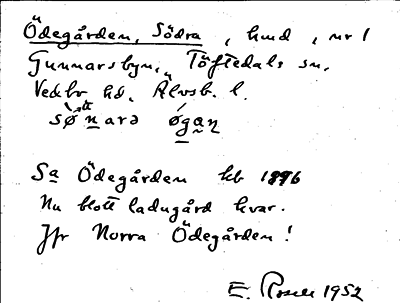 Ödegården, Södra, hmd, nr 1
Gunnarsbyn, Töftedals sn,
Vedbo hd, Älvsb. l.
Sa Ödegården hb 1896
Nu blott ladugård kvar.
Jfr Norra Ödegården!
E. Rosell 1952